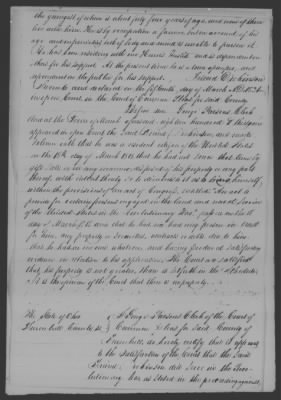 the youngest of whom is about forty four years of age, and none of them
live with him. He is by occupation a farmer but on account of his
age and infirmities both of body and mind is unable to pursue it
He has been residing with one and is dependent
on him for his support. At the present time he is a town pauper, and
dependent on the public for his support.
Sworn to and declared on the fifteenth day of March AD 1824
in open Court in the Court of Common Pleas for said County
Before me George Parsons Clerk
And at the Term of March aforesaid, eighteen Hundred &
appeared in open Court the said and made
Solemn oath that he was a resident citizen of the United States
on the 18th day of March 1818 that he had not since that time by
gift, sale or in any manner disposed of his property or any part
thereof, with intent thereby so to diminish it as to bring himself
within the provisions of an act of Congress, entitled "An act to
provide for certain persons engaged in the land and naval Service
of the United States in the Revolutionary War" passed on the 18th
day of March AD 1818 that he had not nor has any person in trust
for him, any property or Securities, contracts or debts due to him
that he had no income whatever and having produced Satisfactory
evidence in relation to his application. The Court are satisfied
that his property is not greater than is set forth in the Schedule
It is the opinion of the Court that he is in poverty
The State of Ohio
Trumbull County ss.
I George Parsons Clerk of the Court of
Common Pleas for Said County of
Trumbull, do hereby certify that it appears
to the Satisfaction of the Court that the Said
did Serve in the Revo-
lutionary War as stated in the preceding